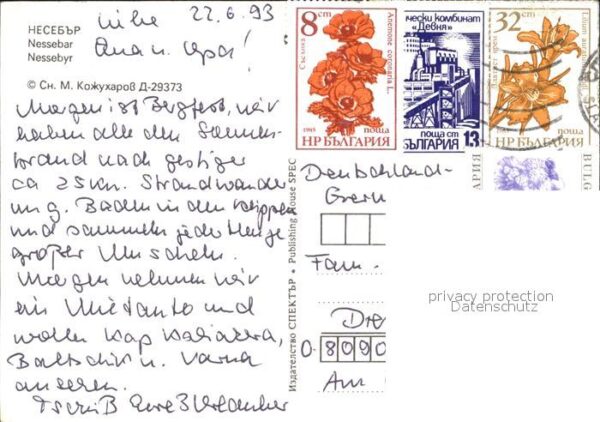 22.6.93
Liebe
Oma u. Opa!
НЕСЕБЪР
Nessebar
Nessebyr
© Сн. М. Кожухаров Д-29373
Morgen ist Bergfest, wir
haben alle den Sonnen-
brand nach gestriger
ca 25 km. Strandwander
ung. Baden in den Klippen
und sammeln jede Menge
großer Muscheln.
Morgen nehmen wir
ein Mietauto und
wollen Kap Kaliakra,
Baltschik u. Varna
ansehen.
Tschüß Eure 3 Urlauber
Издателство СПЕКТЪР • Publishing House SPEC
8 ст
Anemone coronaria L.
1985
поща
НР БЪЛГАРИЯ
чески комбинат
"Девня"
поща ст
БЪЛГАРИЯ 13
32 ст
1985
поща
НР БЪЛГАРИЯ
Deutschland-
Germ
Fam.
Dre
O-8090
Am
privacy protection
Datenschutz